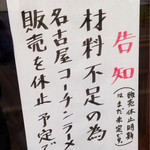 告知
(販売休止時期
はまだ未定です。)
材料不足の為
名古屋コーチンラーメ
販売を休止予定で